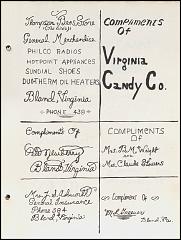 Thompson Bros. Store
General Merchandise
PHILCO RADIOS
HOTPOINT APPLIANCES
SUNDIAL SHOES
DUOTHERM OIL HEATERS
Bland, Virginia
PHONE 43B
Compliments
Of
Virginia
Candy Co.
Compliments Of
Newberry
Bland Virginia
Mrs. F. S. Ashworth
General Insurance
Phone
Bland, Virginia
COMPLIMENTS
OF
Mrs. Wright
and
Mrs. Claude Stowers
Compliments Of
Bland, Va.